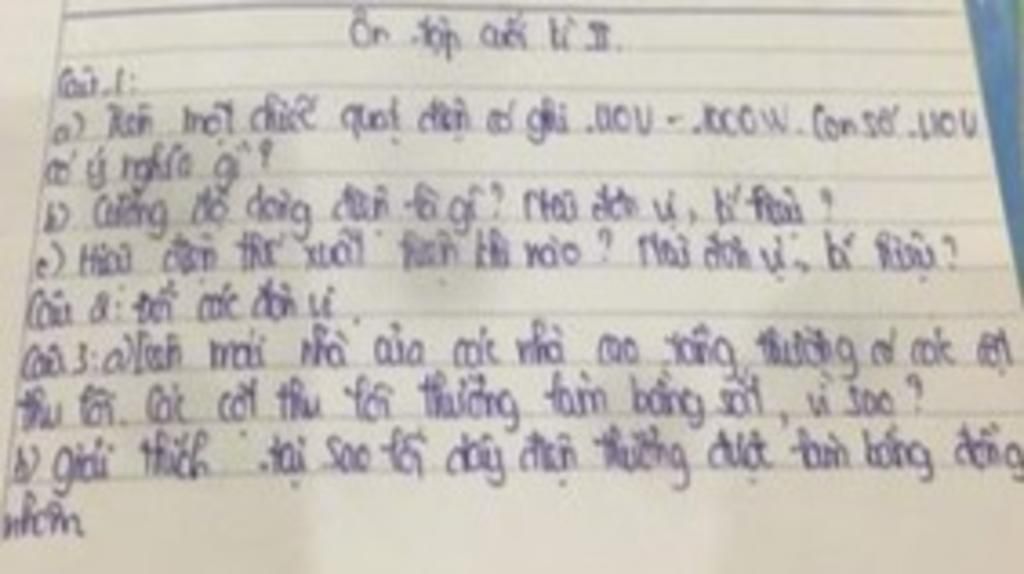 Ôn tập cuối kì II.
Câu 1:
a) Trên một chiếc quạt điện có ghi 110V - 1000W. Con số 110V
có ý nghĩa gì?
b) Cường độ dòng điện là gì? Nêu đơn vị, kí hiệu?
c) Hiệu điện thế xuất hiện khi nào? Nêu đơn vị, kí hiệu?
Câu 2: đổi các đơn vị
Câu 3: a) Trên mái nhà của các nhà cao tầng thường có các cột
thu lôi. Các cột thu lôi thường làm bằng sắt, vì sao?
b) giải thích tại sao lõi dây điện thường được làm bằng đồng
nhôm